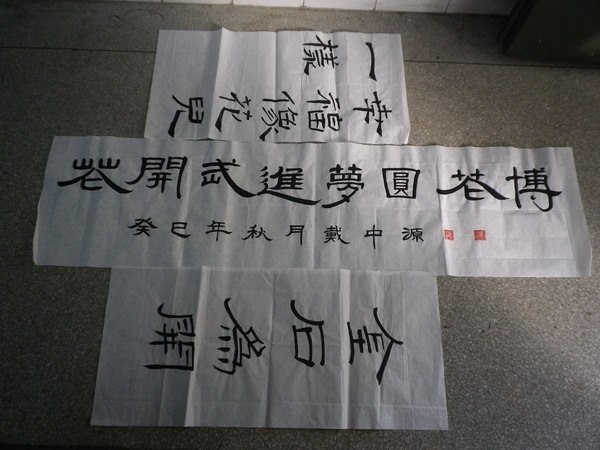 幸福像花兒
一樣
花開武進夢圓花博
癸巳年秋月戴中源
金石為開